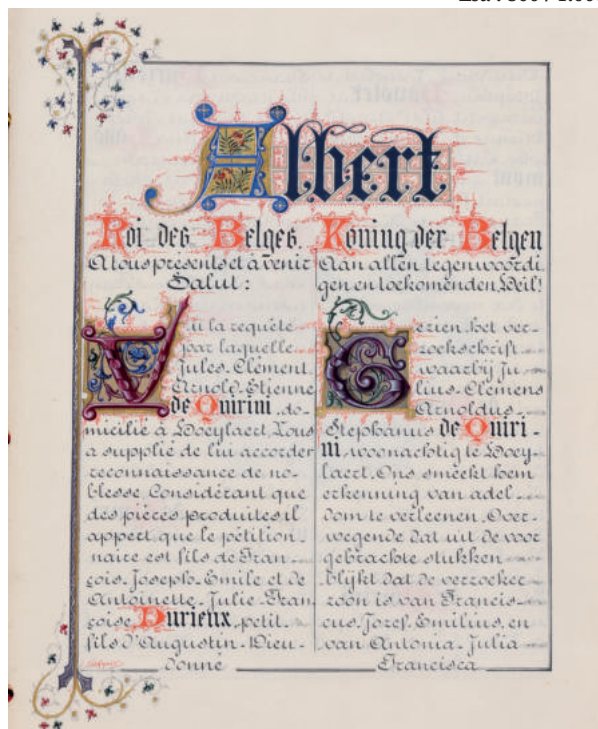 Albert
Roi des Belges.
A tous présents et à venir
Salut :
Vu la requête
par laquelle
Jules-Clément
Arnold-Etienne
de Quirini, do-
micilié à Hoeylaert, Nous
a supplié de lui accorder
reconnaissance de no-
blesse. Considérant que
des pièces produites il
appert que le pétition-
naire est fils de Fran-
çois-Joseph-Emile et de
Antoinette-Julie-Fran
çoise Durieux, petit-
fils d'Augustin-Dieu-
donné
Koning der Belgen
Aan allen tegenwoordi
gen en toekomenden Heil!
Gezien het ver-
zoekschrift
waarbij Ju-
lius-Clemens
Arnoldus-
Stephanus de Quiri-
ni, woonachtig te Hoey-
laert, Ons smeekt hem
erkenning van adel-
dom te verleenen. Over-
wegende dat uit de voor
gebrachte stukken
blijkt dat de verzoeker
zoon is van Francis-
cus-Jozef-Emilius, en
van Antonia-Julia
Francisca